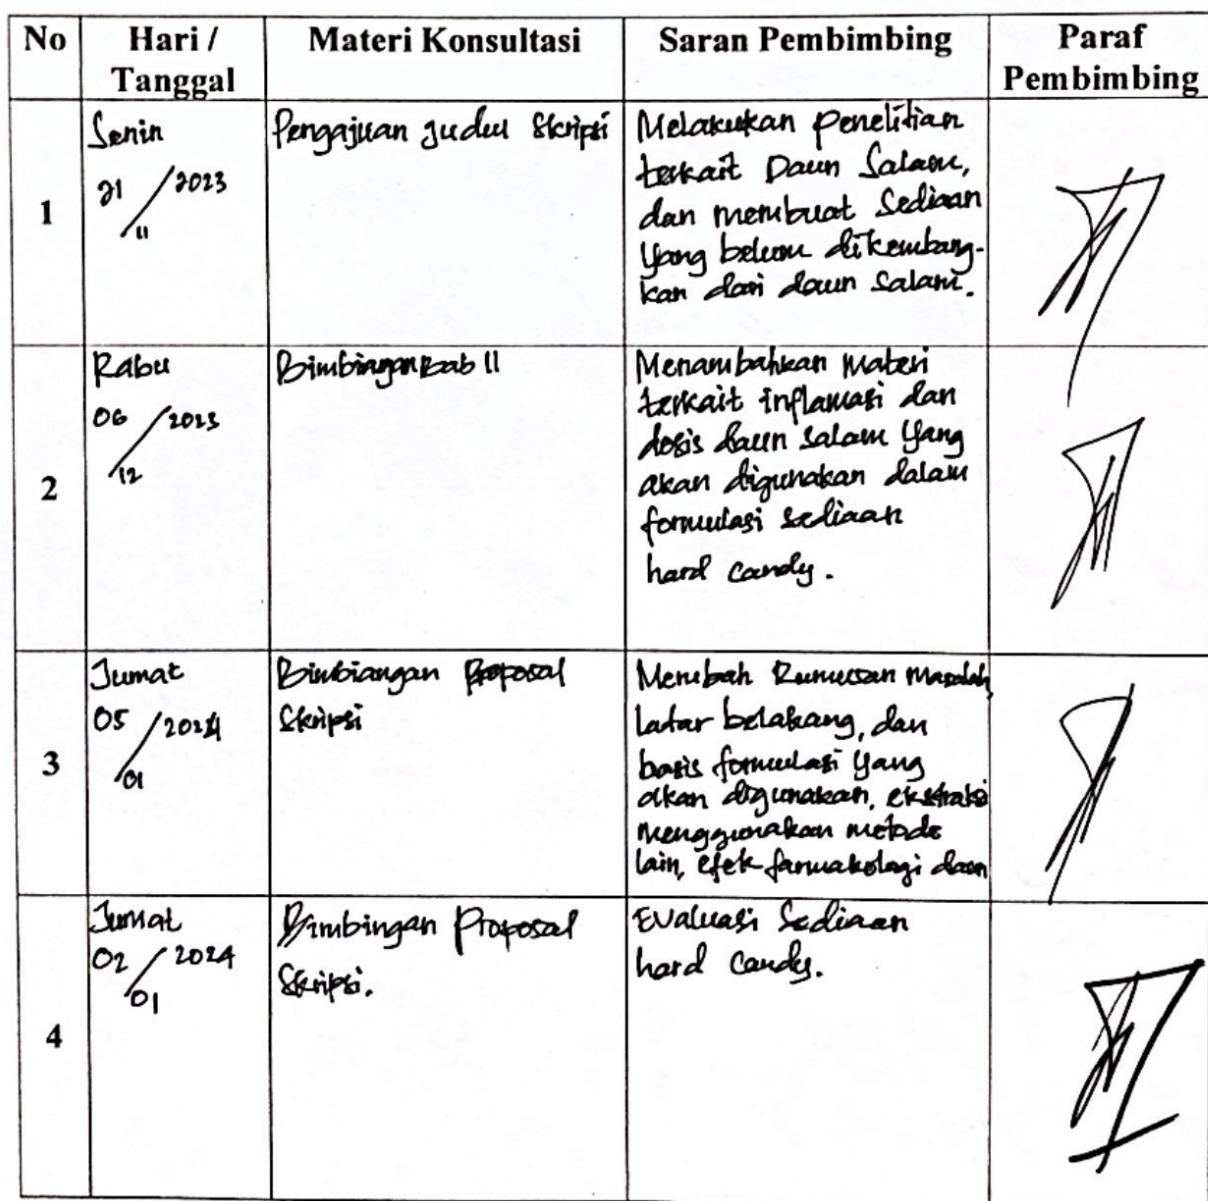 No Hari / Tanggal Materi Konsultasi Saran Pembimbing Paraf Pembimbing
1
Senin
21/11 2023
Pengajuan Judul Skripsi
Melakukan penelitian
terkait Daun Salam,
dan membuat Sediaan
yang belum dikembang-
kan dari daun Salam.
2
Rabu
06/12 2023
Bimbingan Bab II
Menambahkan Materi
terkait inflamasi dan
dosis daun salam yang
akan digunakan dalam
formulasi sediaan
hard candy.
3
Jumat
05/01 2024
Bimbiangan Proposal
Skripsi
Merubah Rumusan Masalah,
latar belakang, dan
basis formulasi yang
akan digunakan, ekstraksi
menggunakan metode
lain, efek farmakologi daun
4
Jumat
02/01 2024
Bimbingan Proposal
Skripsi.
Evaluasi Sediaan
hard Candy.